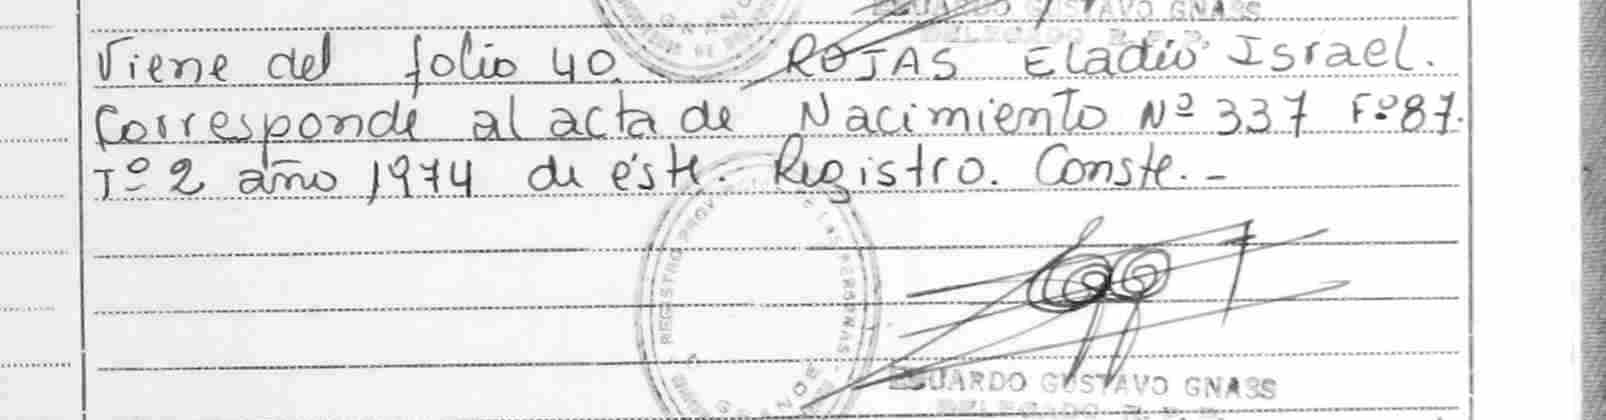 EDUARDO GUSTAVO GNASS
DELEGADO R.P.P.
Viene del folio 40. ROJAS Eladio Israel.
Corresponde al acta de Nacimiento Nº 337 Fº 87.
Tº 2 año 1974 de éste. Registro. Conste.-
REGISTRO PROV
LAS PERSONAS
EDUARDO GUSTAVO GNASS
DELEGADO R.P.P.